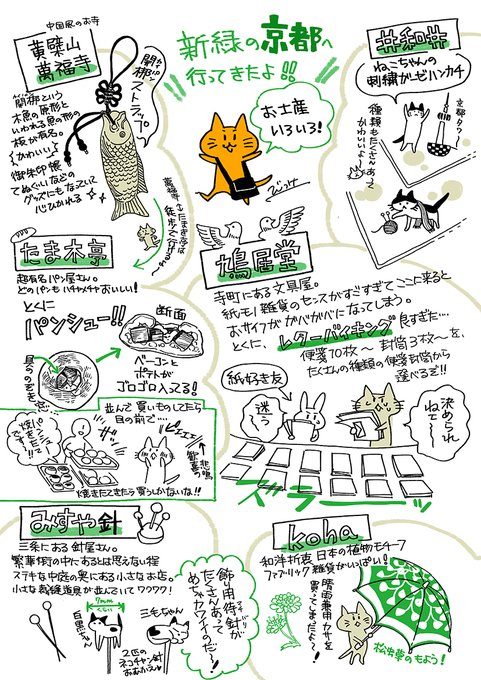 新緑の京都へ
行ってきたよ!!
お土産
いろいろ!
中国風のお寺
黄檗山
萬福寺
開梆
ストラップ。
開梆という
木魚の原形と
いわれる魚の形の
板が有名。
かわいい♪
御朱印帳
てぬぐいなどの
グッズにもなっていて
心ひかれる
萬福寺とたま木亭は
徒歩で行ける
井和井
ねこちゃんの
刺繍ガーゼハンカチ
種類もたくさんあって
かわいいよ〜
京都タワー
たま木亭
超有名パン屋さん。
どのパンもバチャメチャおいしい!
とくに
パンシュー!!
断面
ベーコンと
ポテトが
ゴロゴロ入ってる!
並んで買いものしてたら
目の前で…
焼きたてで〜す
ザッ
ピェェェ!
歓喜の悲鳴
焼きたてきたら買うしかないな!!
鳩居堂
寺町にある文具屋。
紙モノ雑貨のセンスがすごすぎてここに来ると
おサイフがガバガバになってしまう。
とくに、レターバイキング良すぎた…
便箋10枚〜 封筒3枚〜を、
たくさんの種類の便箋封筒から
選べるぞ!!
紙好き友
迷う
決められねェ〜
ズラーッ
みすや針
三条にある針屋さん。
繁華街の中にあるとは思えない程
ステキな中庭の奥にある小さなお店。
小さな裁縫道具が並んでいてワクワク!
7mmくらい
白黒ちゃん
三毛ちゃん
2匹の
ネコチャン針
おむかえ♥
飾り用待針が
たくさんあって
めちゃカワイイのだ〜!
koha
和洋折衷 日本の植物モチーフ
ファブリック雑貨がいっぱい!
晴雨兼用カサを
買ってしまったよ♪
松虫草のもよう!